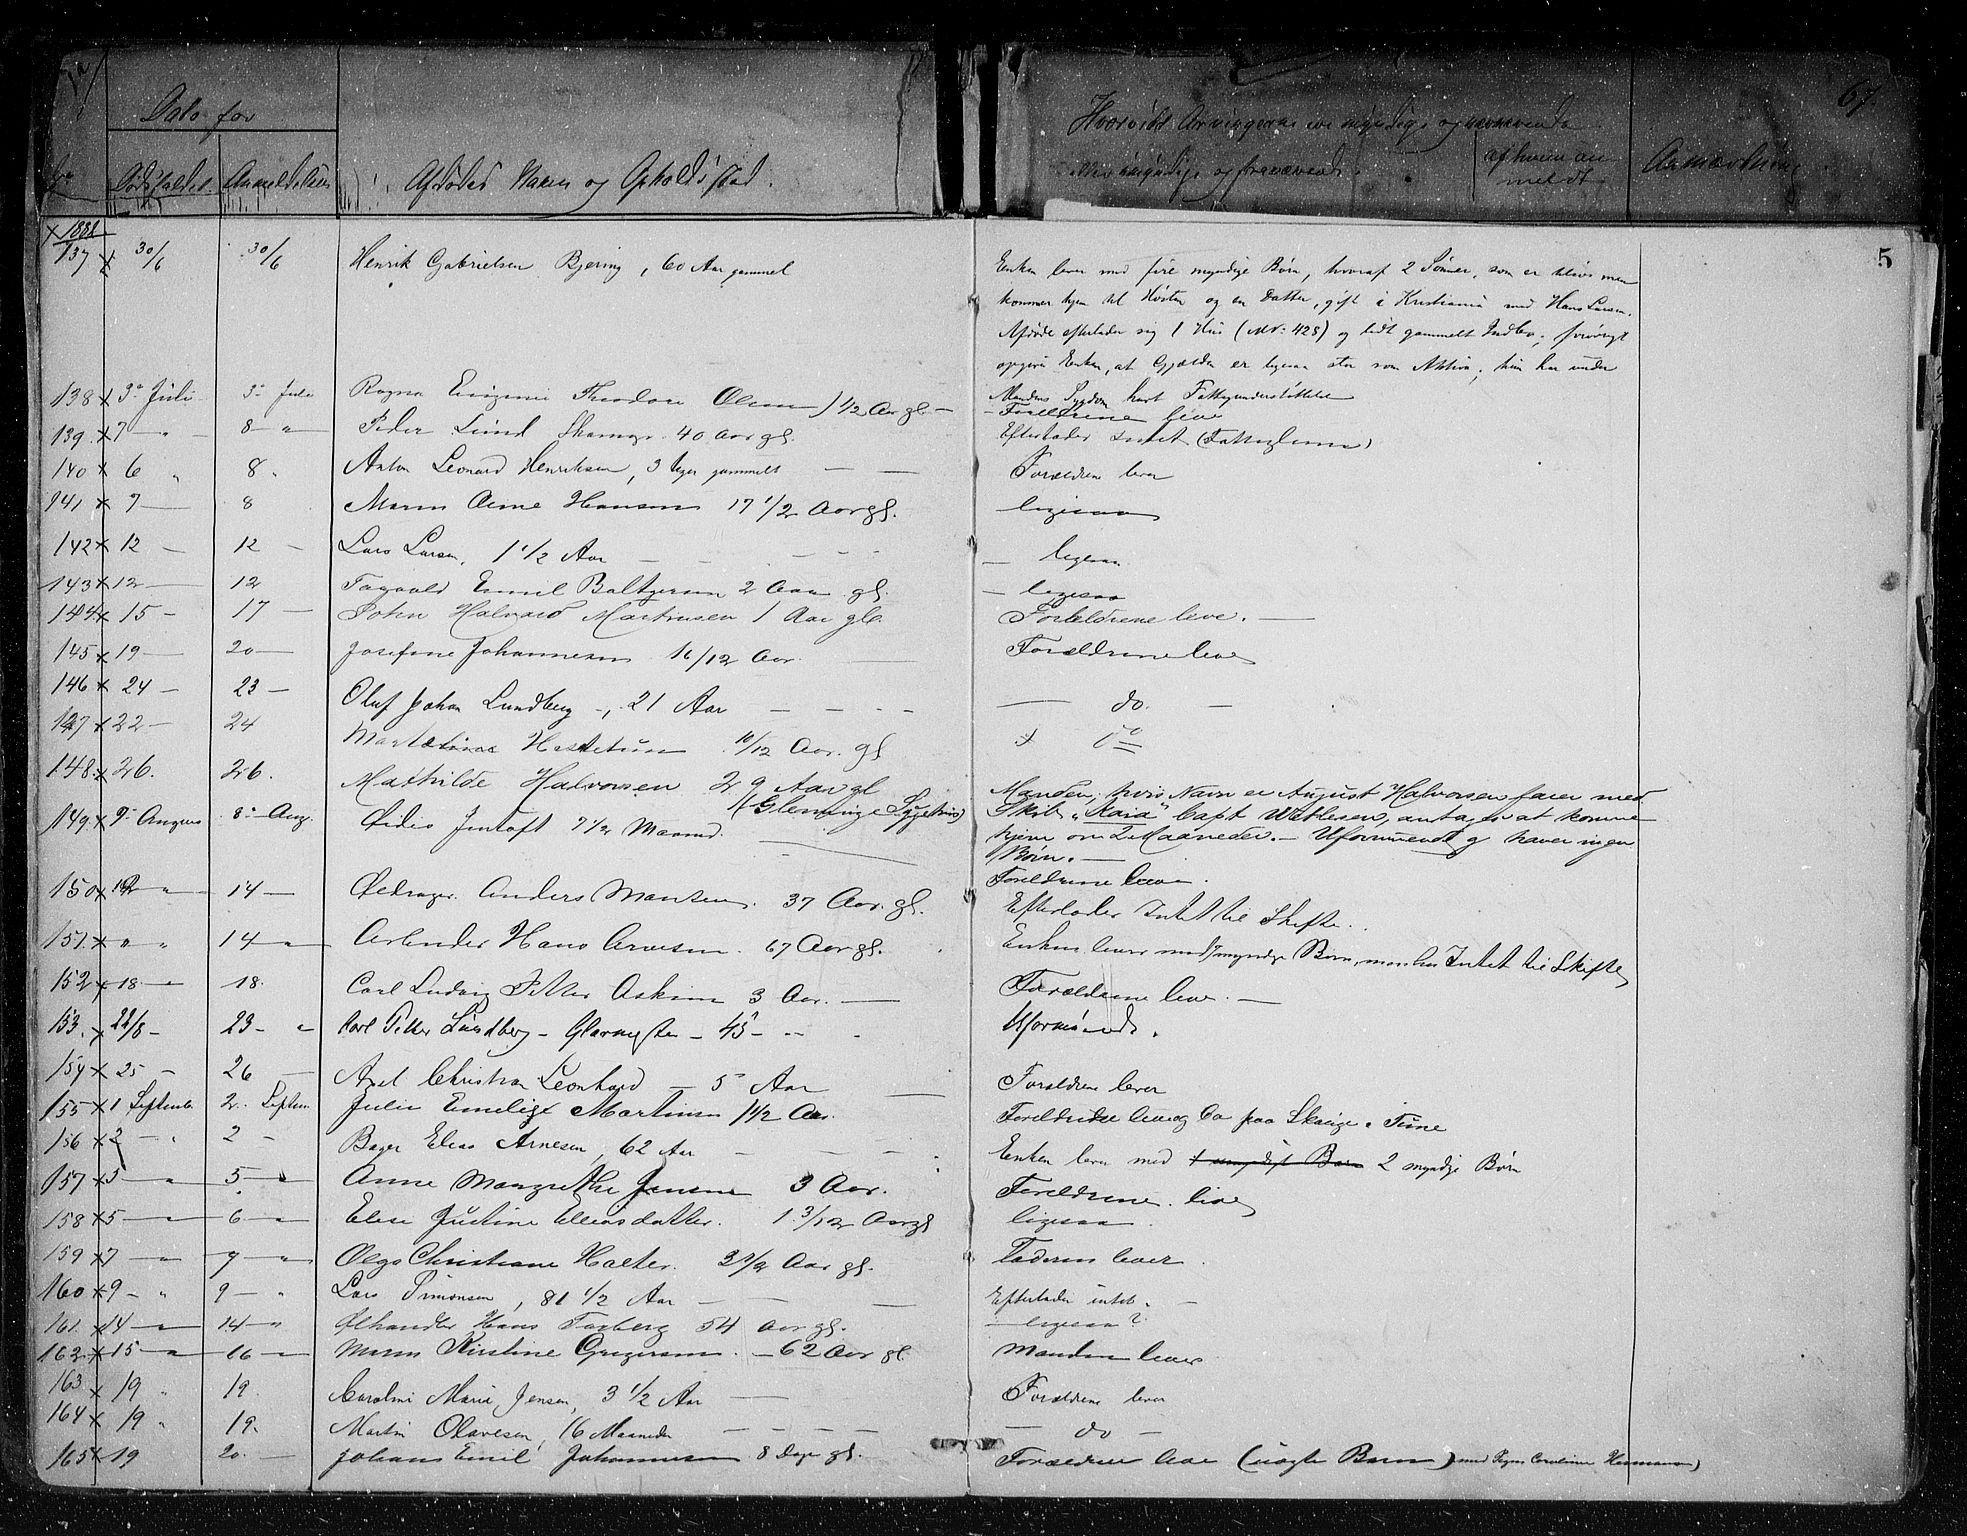 67.
5
Dato for
Dødsfaldet. Anmeldelsen
Afdødes Navn og Opholdssted.
Hvorvidt Arvingerne ere myndige og nærværende
eller umyndige og fraværende.
af hvem an
meldt
Anmærkning
1882
137 30/6 30/6 Henrik Gabrielsen Bjering, 60 Aar gammel
Enken lever med fire myndige Børn, hvoraf 2 Sønner, som er tilsøs men
kommer hjem til Høsten og en Datter, gift i Kristiania med Hans Larsen.
Afdøde efterlader sig 1 Hus (Mt: 428) og lidt gammelt Indbo; forøvrigt
opgiver Enken, at Gjælden er ligesaa stor som Aktiva; hun har under
Mandens Sygdom havt Fattigunderstøttelse
138 3 Juli 3 Juli Ragna Eugenie Theodora Olsen 1 1/2 Aar gl. — Forældrene leve
139. 7 — " 8 — " Peder Lund 40 Aar gl. Efterlader Intet (Fattiglem)
140 6 " 8 " Anton Leonard Henriksen, 3 Uger gammelt — — Forældrene lever
141 7 — 8 Maren Hansen 17 1/2 Aar gl. ligesaa
142 12 — 12 — Lars Larsen, 1 1/2 Aar — — — ligesaa
143 12 — 12 Emil 2 Aar gl. — ligesaa
144 15 — 17 — John Halvard Martinsen 1 Aar gl. Forældrene leve. —
145 19 — 20 — Josefine Johannesen 11/12 Aar. — Forældrene leve
146 24 — 23 — Oluf Johan Lundberg —, 21 Aar — — — do. —
147 22 — 24 10/12 Aar. gl do
148. 26. 26. Mathilde Halvorsen 29 Aar gl
(Glemminge Sygehus)
Manden, hvis Navn er August Halvorsen farer med
Skib "Kaia" Capt antages at komme
hjem om 2 Maaneder. — Uformuende og haver ingen
Børn. —
149 9 August 8 Aug. Jentoft 7 1/2 Maaned. Forældrene leve.
150 12 " 14 — Anders 37 Aar. gl. Efterlader Intet til Skifte.
151. " " 14 — " Hans 67 Aar gl. Enken lever med myndige Børn, men har Intet til Skifte
152 18. — 18. Carl Ludvig Petter Askim 3 Aar. — Forældrene leve. —
153. 22/8 23 — " Carl Petter Lundberg — Glarmester — 45 — Uformuende.
154 25 — 26 — Axel Christian Leonhard — 5 Aar Forældrene lever
155 1 Septemb. 2. Septem. Julie Emelige Martinsen 1 1/2 Aar. Forældrene leve og bo paa i Tune
156 2 — " 2 — Bager Elias Arnesen, 62 Aar — — — Enken lever med 2 myndige Børn
157 5 — " 5 — " Anne Margrethe Jensen 3 Aar. Forældrene leve
158 5 — " 6 — " Elise Justine Eliasdatter. 1 3/12 Aar gl ligesaa
159 7 — " 7 — " Olga Christiane Holter. 3 1/2 Aar gl. Faderen lever
160 9 — " 9 — " Lars Simonsen, 81 1/2 Aar — — Efterlader intet. —
161. 14 — " 14 — " Ølhandler Hans Torberg 54 Aar gl. — ligesaa?
162. 15 — " 16 — " Maren Kirstine Gregersen. — 62 Aar gl. Manden lever
163 19 " 19. Caroline Marie Jensen, 3 1/2 Aar — Forældrene lever
164 19 " 19. Martin Olavesen, 16 Maaneder — — — — do —
165 19 20. — Johans Emil Johannesen 8 Dage gl. — Forældrene leve (uægte Barn) med Pigen Caroline Hermansen)